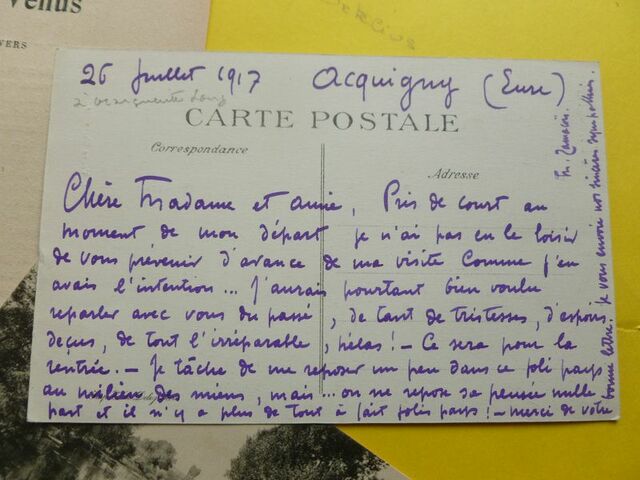 Venus
VERS
26 Juillet 1917 Acquigny (Eure)
CARTE POSTALE
Correspondance
Adresse
Chère Madame et amie, Pris de court au
moment de mon départ je n'ai pas eu le loisir
de vous prévenir d'avance de ma visite comme j'en
avais l'intention... J'aurais pourtant bien voulu
reparler avec vous du passé, de tant de tristesses, d'espoirs
deçus, de tout l'irréparable, hélas! — Ce sera pour la
rentrée. — Je tâche de me reposer un peu dans ce joli pays
au milieu des miens, mais... on ne repose sa pensée nulle
part et il n'y a plus de tout à fait jolis pays! — merci de votre
bonne lettre. je vous envoie nos sincères sympathies.